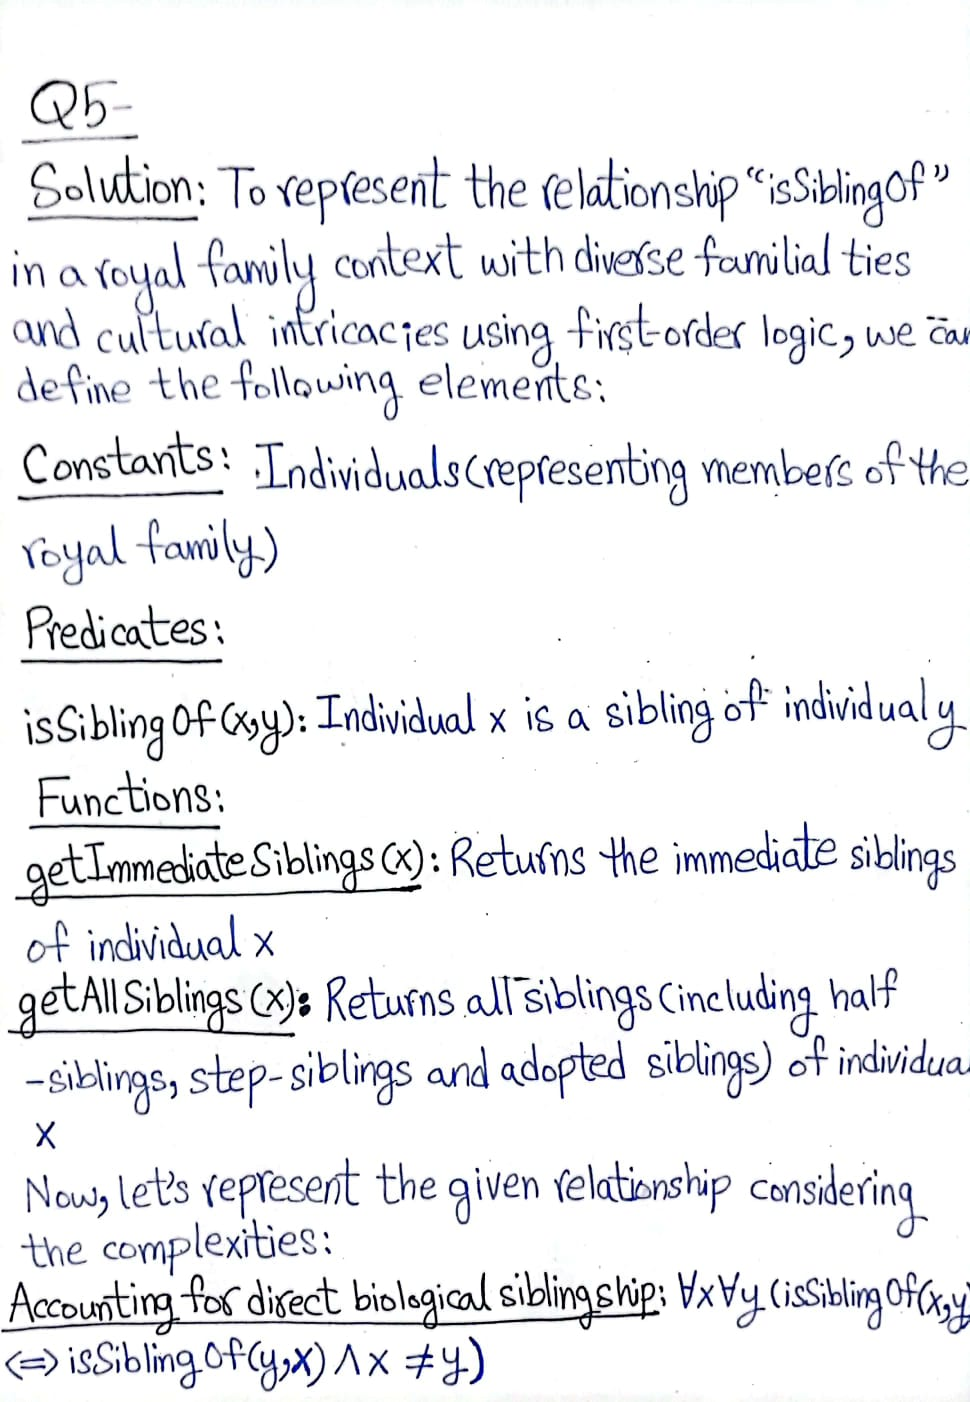 Q5-
Solution: To represent the relationship “isSiblingOf”
in a royal family context with diverse familial ties
and cultural intricacies using first-order logic, we can
define the following elements:
Constants: Individuals (representing members of the
royal family)
Predicates:
isSiblingOf(x,y): Individual x is a sibling of individual y
Functions:
getImmediateSiblings(x): Returns the immediate siblings
of individual x
getAllSiblings(x): Returns all siblings (including half
-siblings, step-siblings and adopted siblings) of individua
x
Now, let's represent the given relationship considering
the complexities:
Accounting for direct biological siblingship: ∀x∀y (isSiblingOf(x,y
<=> isSiblingOf(y,x) ∧ x ≠ y)